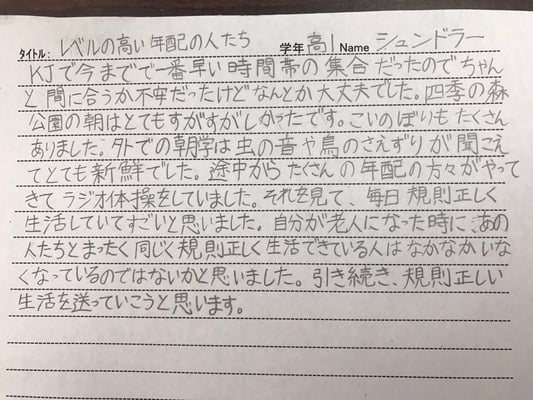 タイトル: レベルの高い年配の人たち 学年 高1 Name シュンドラー
KJで今までで一番早い時間帯の集合だったのでちゃん
と間に合うか不安だったけどなんとか大丈夫でした。四季の森
公園の朝はとてもすがすがしかったです。こいのぼりもたくさん
ありました。外での朝学は虫の音や鳥のさえずりが聞こえ
てとても新鮮でした。途中からたくさんの年配の方々がやって
きてラジオ体操をしていました。それを見て、毎日規則正しく
生活していてすごいと思いました。自分が老人になった時に、あの
人たちとまったく同じく規則正しく生活できている人はなかなかいな
くなっているのではないかと思いました。引き続き、規則正しい
生活を送っていこうと思います。